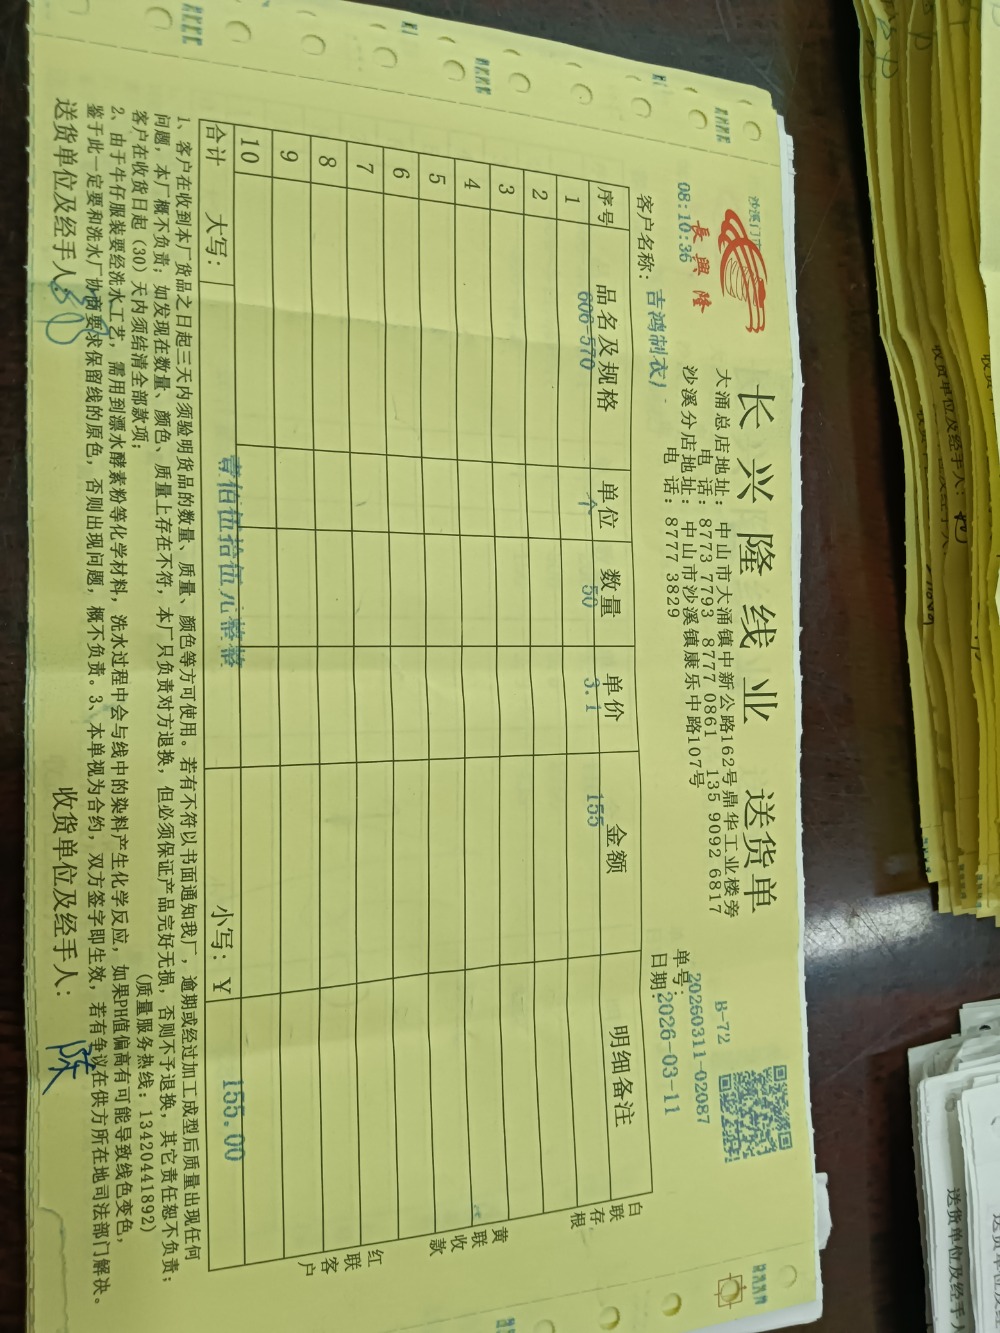 长兴隆线业 送货单
長興隆
沙溪门市
08:10:36
大涌总店地址：中山市大涌镇中新公路162号鼎华工业楼旁
电 话：8773 7793 8777 0861 135 9092 6817
沙溪分店地址：中山市沙溪镇康乐中路107号
电 话：8777 3829
B-72
单号：20260311-02087
日期：2026-03-11
客户名称：吉鸿制衣
序号 品名及规格 单位 数量 单价 金额 明细备注
1 606-570 个 50 3.1 155
2
3
4
5
6
7
8
9
10
合计 大写：壹佰伍拾伍元整整 小写：￥ 155.00
白联存根
黄联收款
红联客户
1、客户在收到本厂货品之日起三天内须验明货品的数量、质量、颜色等方可使用。若有不符以书面通知我厂，逾期或经过加工成型后质量出现任何
问题，本厂概不负责；如发现在数量、颜色、质量上存在不符，本厂只负责对方退换，但必须保证产品完好无损，否则不予退换，其它责任恕不负责；
客户在收货日起（30）天内须结清全部款项； （质量服务热线：13420441892）
2、由于牛仔服装要经洗水工艺，需用到漂水酵素粉等化学材料，洗水过程中会与线中的染料产生化学反应，如果PH值偏高有可能导致线色变色，
鉴于此一定要和洗水厂协商要求保留线的原色，否则出现问题，概不负责。3、本单视为合约，双方签字即生效，若有争议在供方所在地司法部门解决。
送货单位及经手人： 收货单位及经手人：
收货单位及经手人：
送货单位及经手人